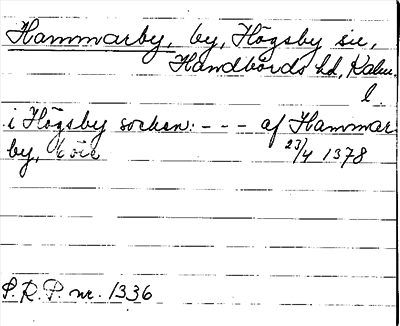 Hammarby, by, Högsby sn,
Handbörds hd, Kalm.
l.
i Högsby socken: - - - af Hammar
by,
23/4 1378
S.R.P. nr. 1336